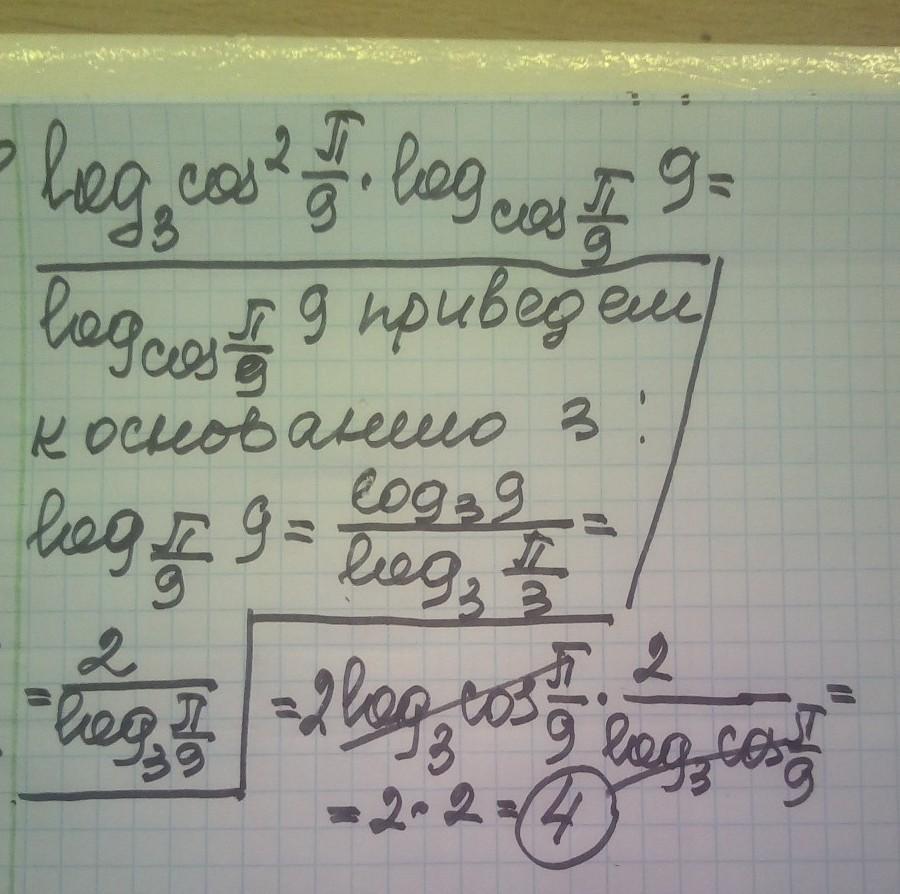 log₃ cos² π/9 · log_{cos π/9} 9 =
log_{cos π/9} 9 приведем
к основанию 3 :
log_{π/9} 9 = log₃ 9 / log₃ π/3 =
= 2 / log₃ π/9
= 2 log₃ cos π/9 · 2 / log₃ cos π/9 =
= 2 · 2 = 4